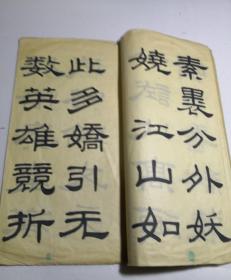 素裹分外妖
嬈江山如
此多嬌引无
数英雄競折